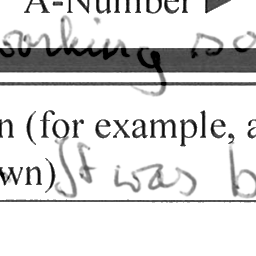 A-Number
working so
n (for example, a
wn) It was b